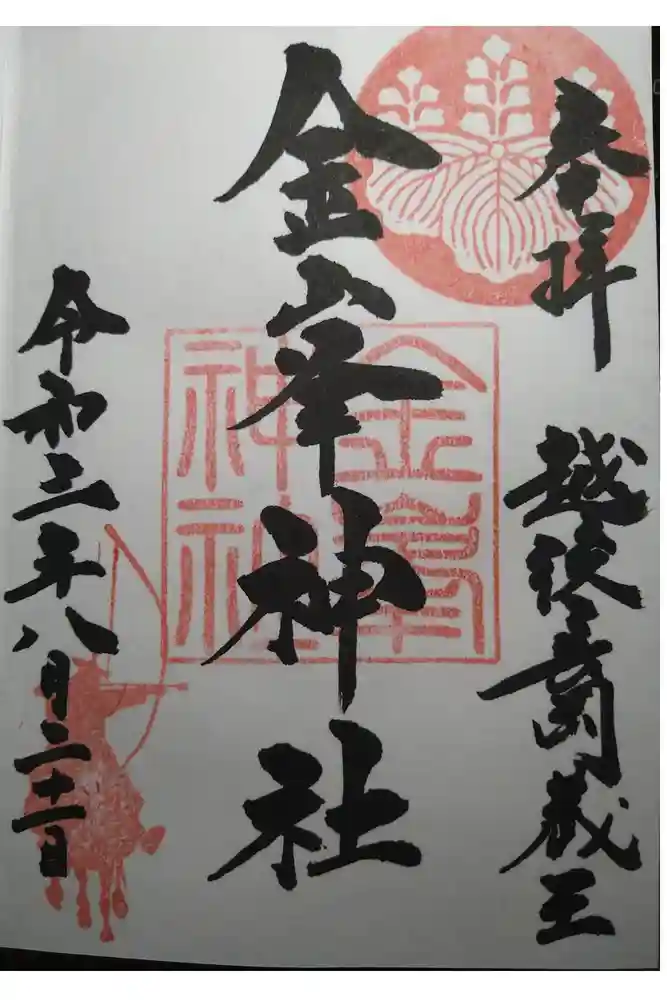 奉拝 越後長岡蔵王
金峯神社
令和三年八月二十二日
金峯
神社